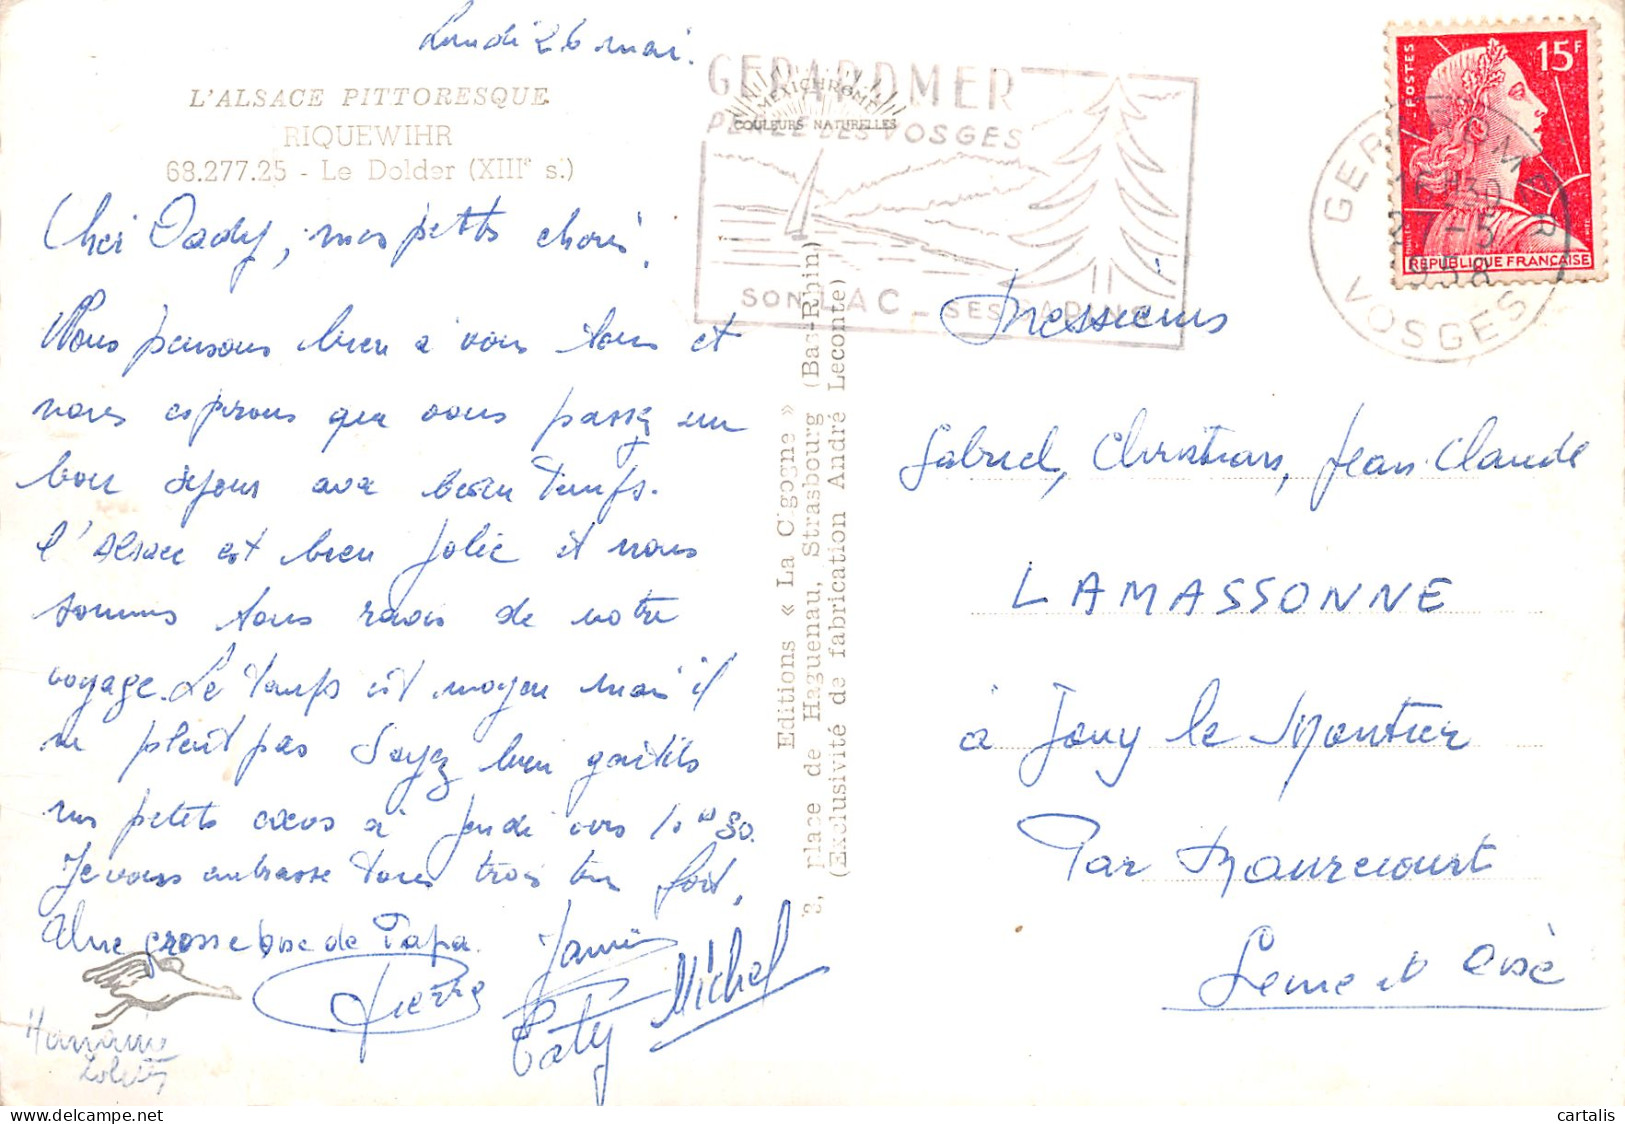 Lundi 26 mai.
L'ALSACE PITTORESQUE
RIQUEWIHR
68.277.25 - Le Dolder (XIIIe s.)
Cher Dady, mes petits chéris,
Nous pensons bien à vous tous et
nous espérons que vous passez un
bon séjour avec beau temps.
L'Alsace est bien jolie et nous
sommes tous ravis de notre
voyage. Le temps est moyen mais il
ne pleut pas Soyez bien gentils
mes petits cocos à jeudi vers
Je vous embrasse tous trois bien fort,
Une grosse bise de Papa.
Pierre
Katy
Michel
GERARDMER
PERLE DES VOSGES
SON LAC - SES SAPINS
MEXICHROME
COULEURS NATURELLES
Editions « La Cigogne »
3, place de Haguenau, Strasbourg (Bas-Rhin)
(Exclusivité de fabrication André Leconte)
POSTES
15F
REPUBLIQUE FRANÇAISE
MULLER
GERARDMER
16H30
27-5
1958
VOSGES
Messieurs
Gabriel, Christian, Jean-Claude
LAMASSONNE
à Jouy le Moutier
Par Maurecourt
Seine et Oise
cartalis